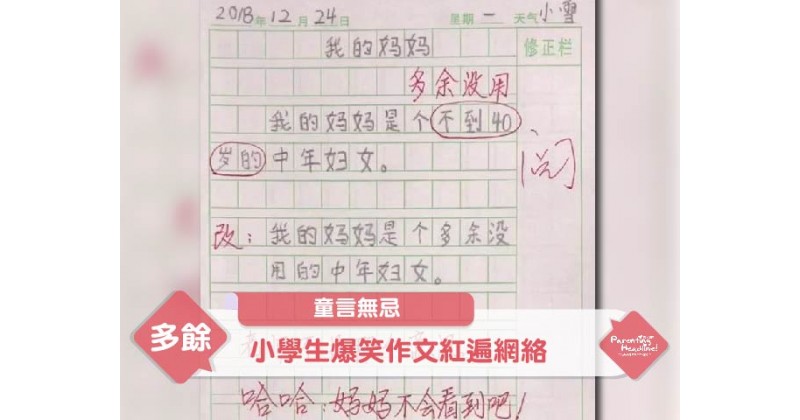 2018年12月24日 星期一 天气小雪
我的妈妈
修正栏
多余没用
我的妈妈是个不到40
岁的中年妇女。
阅
改：我的妈妈是个多余没
用的中年妇女。
童言無忌
多餘
小學生爆笑作文紅遍網絡
Parenting
Headline!
哈哈：妈妈不会看到吧！